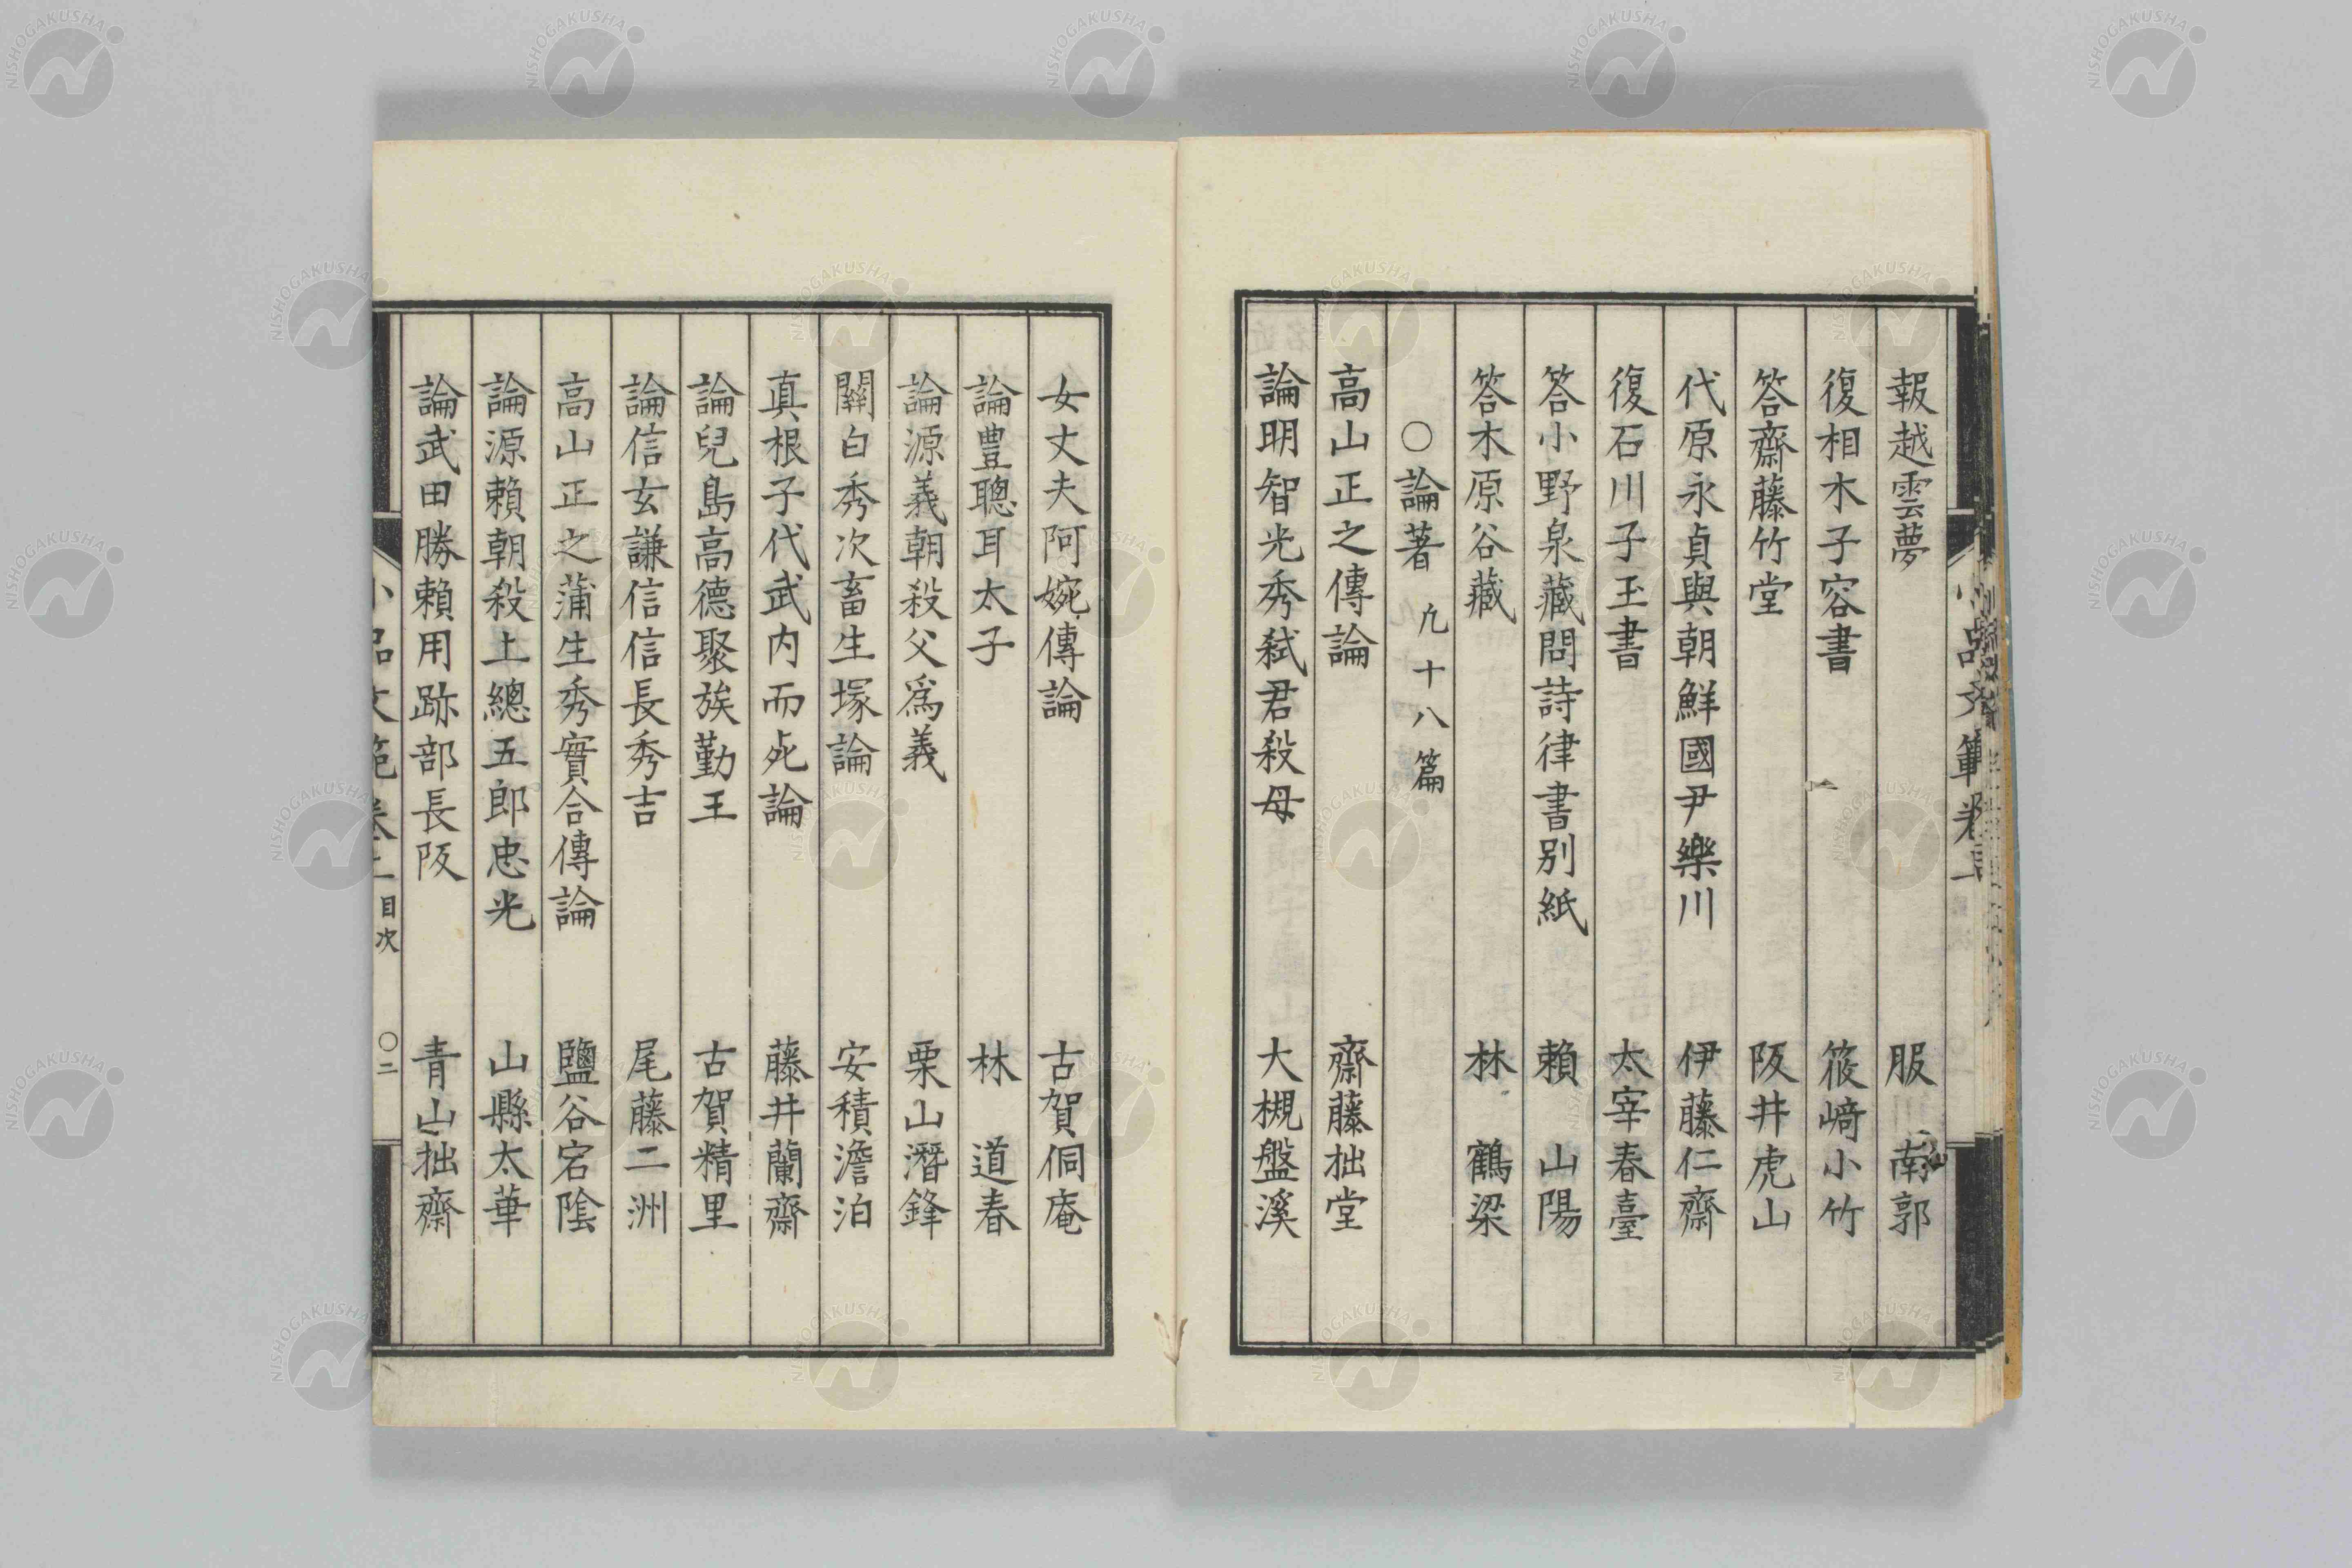 報越雲夢 服 南郭
復相木子容書 筱﨑小竹
答齋藤竹堂 阪井虎山
代原永貞與朝鮮國尹樂川 伊藤仁齋
復石川子玉書 太宰春臺
答小野泉藏問詩律書別紙 賴 山陽
答木原谷藏 林 鶴梁
〇論著 九十八篇
高山正之傳論 齋藤拙堂
論明智光秀弑君殺母 大槻盤溪
女丈夫阿婉傳論 古賀侗庵
論豊聰耳太子 林 道春
論源義朝殺父爲義 栗山潛鋒
關白秀次畜生塚論 安積澹泊
真根子代武内而死論 藤井蘭齋
論兒島高德聚族勤王 古賀精里
論信玄謙信信長秀吉 尾藤二洲
高山正之蒲生秀實合傳論 鹽谷宕陰
論源賴朝殺上總五郎忠光 山縣太華
論武田勝賴用跡部長阪 青山拙齋
小品文範卷上 目次 〇二
NISHOGAKUSHA